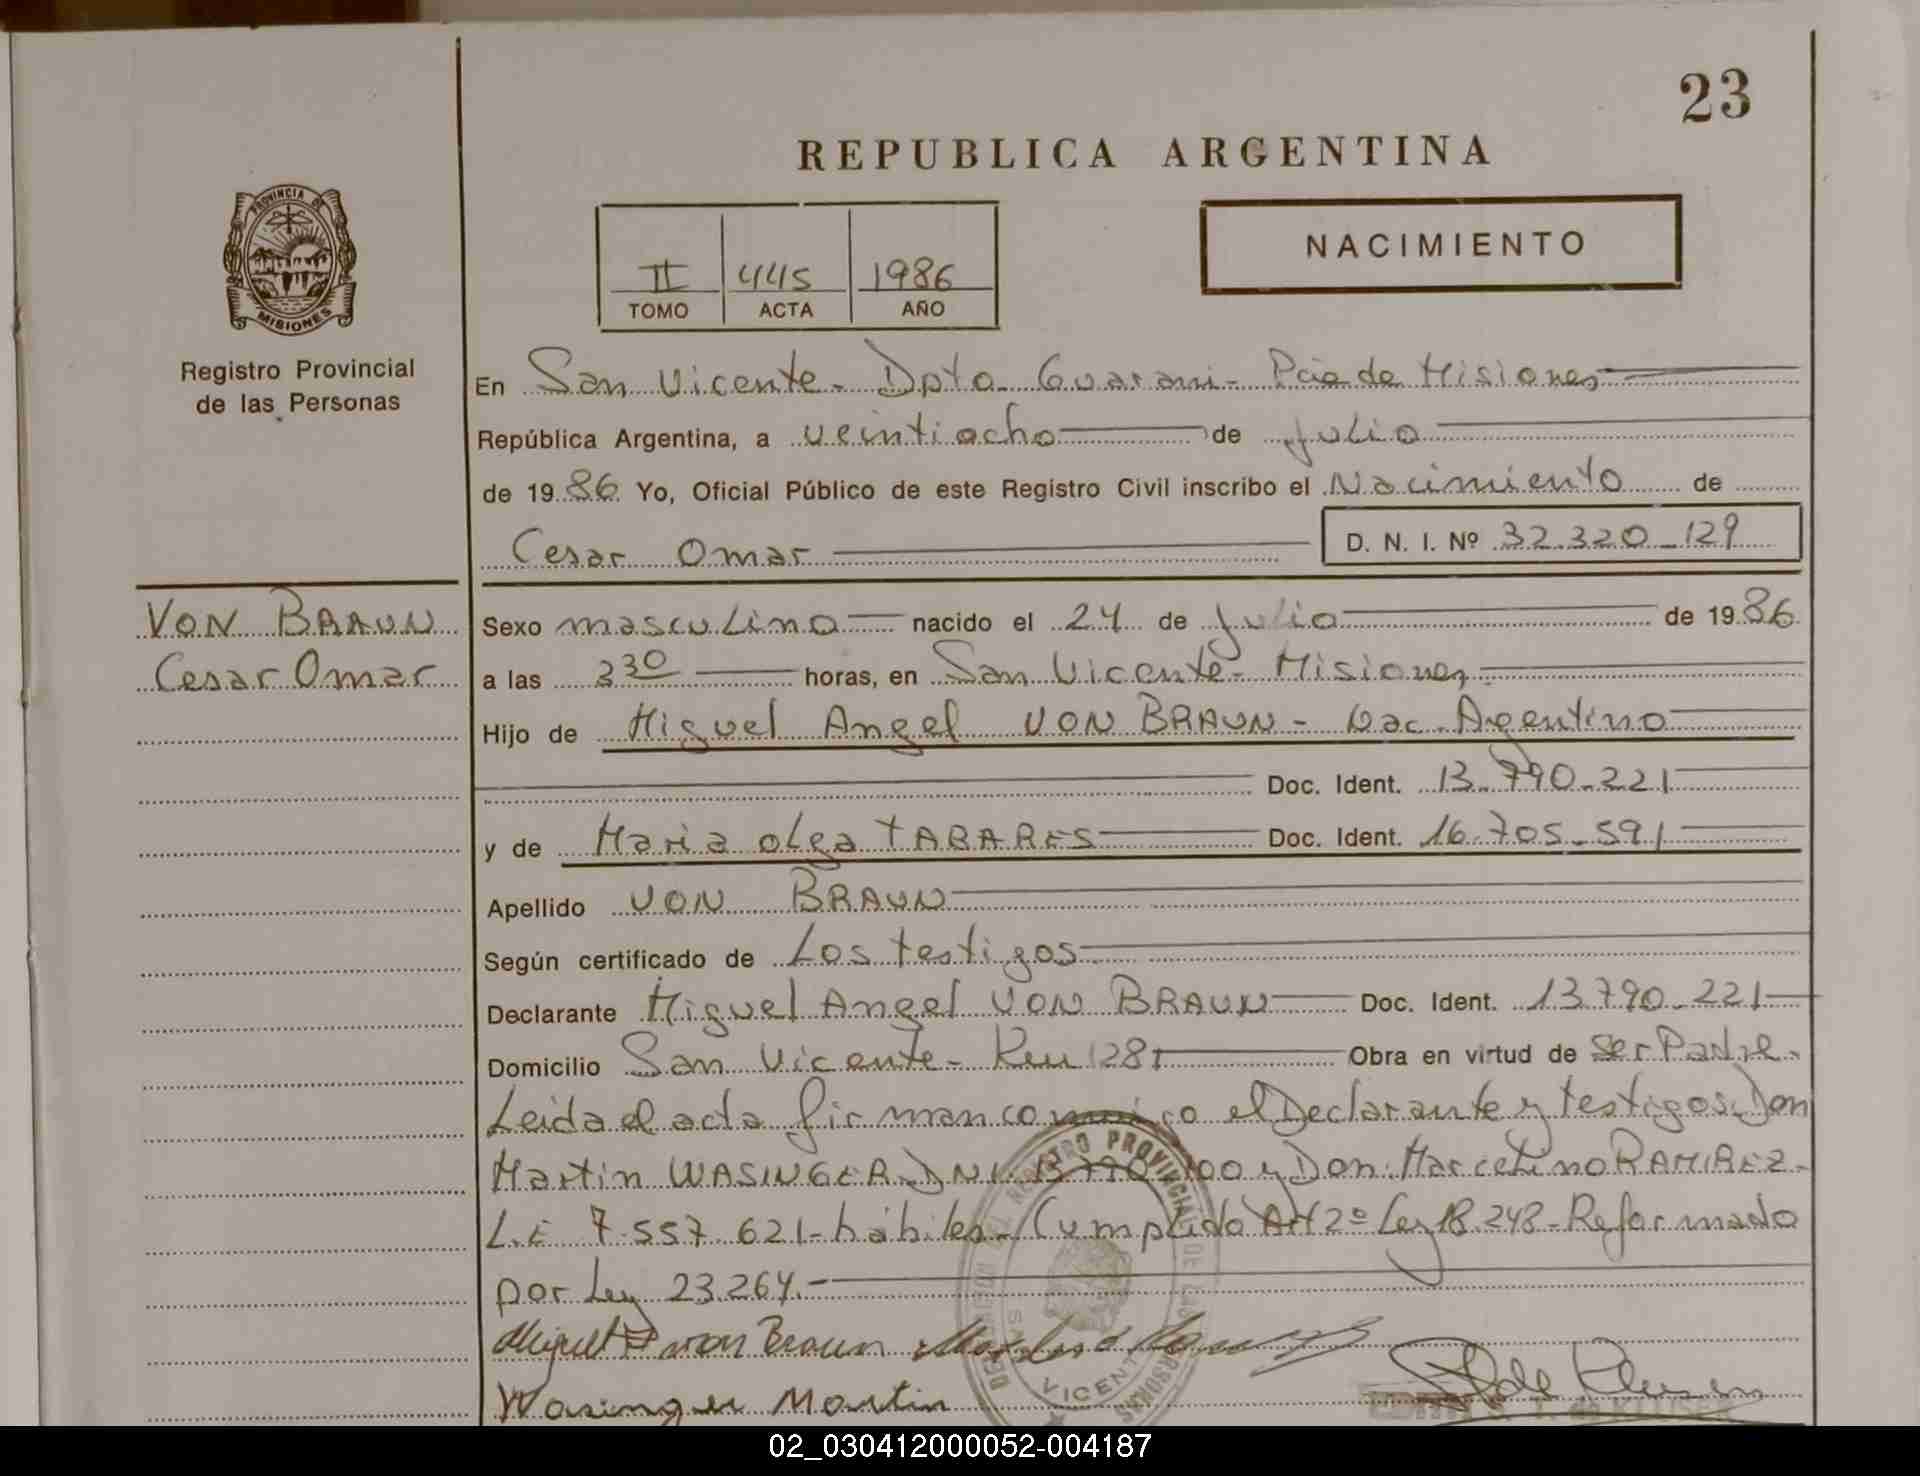 23
REPUBLICA ARGENTINA
PROVINCIA DE
MISIONES
Registro Provincial
de las Personas
II 445 1986
TOMO ACTA AÑO
NACIMIENTO
En San Vicente - Dpto Guarani - Pcia de Misiones
República Argentina, a veintiocho de julio
de 1986 Yo, Oficial Público de este Registro Civil inscribo el Nacimiento de
Cesar Omar D. N. I. Nº 32.320-129
VON BRAUN
Cesar Omar
Sexo masculino nacido el 24 de julio de 1986
a las horas, en San Vicente - Misiones
Hijo de Miguel Angel VON BRAUN - Nac. Argentino
Doc. Ident. 13.790.221
y de Maria Olga TABARES Doc. Ident. 16.705.591
Apellido VON BRAUN
Según certificado de Los testigos
Declarante Miguel Angel VON BRAUN Doc. Ident. 13790.221
Domicilio San Vicente - Obra en virtud de ser Padre.
Leida el acta firman co el Declarante y testigos Don
Martin WASINGER DNI. 13 790 y Don Marcelino RAMIREZ -
L.E 7.557.621 - hábiles - Cumplido Art 2º Ley 18.248 - Reformado
por Ley 23.264. -
Miguel von Braun
Wasinger Martin
REGISTRO PROVINCIAL DE LAS PERSONAS
VICENTE
02_030412000052-004187